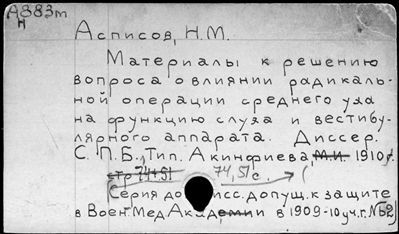 А883т
н
Асписов, Н.М.
Материалы к решению
вопроса о влиянии радикаль-
ной операции среднего уха
на функцию слуха и вестибу-
лярного аппарата. Диссер.
С.П.Б., Тип. Акинфиева, М.И. 1910 г.
стр 74+51 74, 51 с.
(Серия до исс. допущ. к защите
в Воен Мед Академии в 1909-10 уч. г. №52)